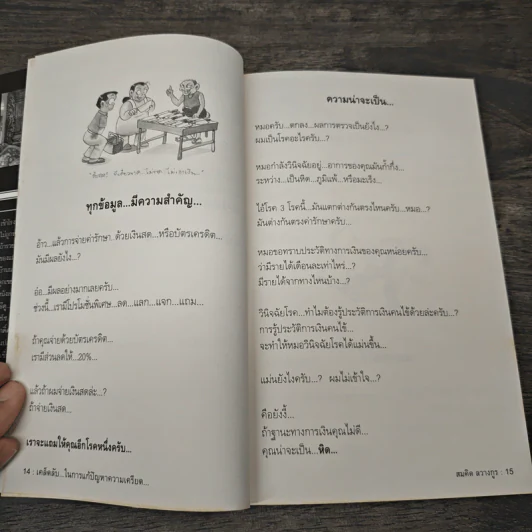 ทุกข้อมูล...มีความสำคัญ...
อ้าว...แล้วการจ่ายค่ารักษา ด้วยเงินสด...หรือบัตรเครดิต...
มันมีผลยังไง...?
อ๋อ...มีผลอย่างมากเลยครับ...
ช่วงนี้...เรามีโปรโมชั่นพิเศษ...ลด...แลก...แจก...แถม...
ถ้าคุณจ่ายด้วยบัตรเครดิต...
เรามีส่วนลดให้...20%...
แล้วถ้าผมจ่ายเงินสดล่ะ...?
ถ้าจ่ายเงินสด...
เราจะแถมให้คุณอีกโรคหนึ่งครับ...
14 : เคล็ดลับ...ในการแก้ปัญหาความเครียด...
ความน่าจะเป็น...
หมอครับ...ตกลง...ผลการตรวจเป็นยังไง...?
ผมเป็นโรคอะไรครับ...?
หมอกำลังวินิจฉัยอยู่...อาการของคุณมันก้ำกึ่ง...
ระหว่าง...เป็นหิด...ภูมิแพ้...หรือมะเร็ง...
ไอ้โรค 3 โรคนี้...มันแตกต่างกันตรงไหนครับ...หมอ...?
มันต่างกันตรงค่ารักษาครับ...
หมอขอทราบประวัติทางการเงินของคุณหน่อยครับ...
ว่ามีรายได้เดือนละเท่าไหร่...?
มีรายได้จากทางไหนบ้าง...?
วินิจฉัยโรค...ทำไมต้องรู้ประวัติการเงินคนไข้ด้วยล่ะครับ...?
การรู้ประวัติการเงินคนไข้...
จะทำให้หมอวินิจฉัยโรคได้แม่นขึ้น...
แม่นยังไงครับ...? ผมไม่เข้าใจ...?
คืองี้...
ถ้าฐานะทางการเงินคุณไม่ดี...
คุณน่าจะเป็น...หิด...
สมคิด ลวางกูร : 15